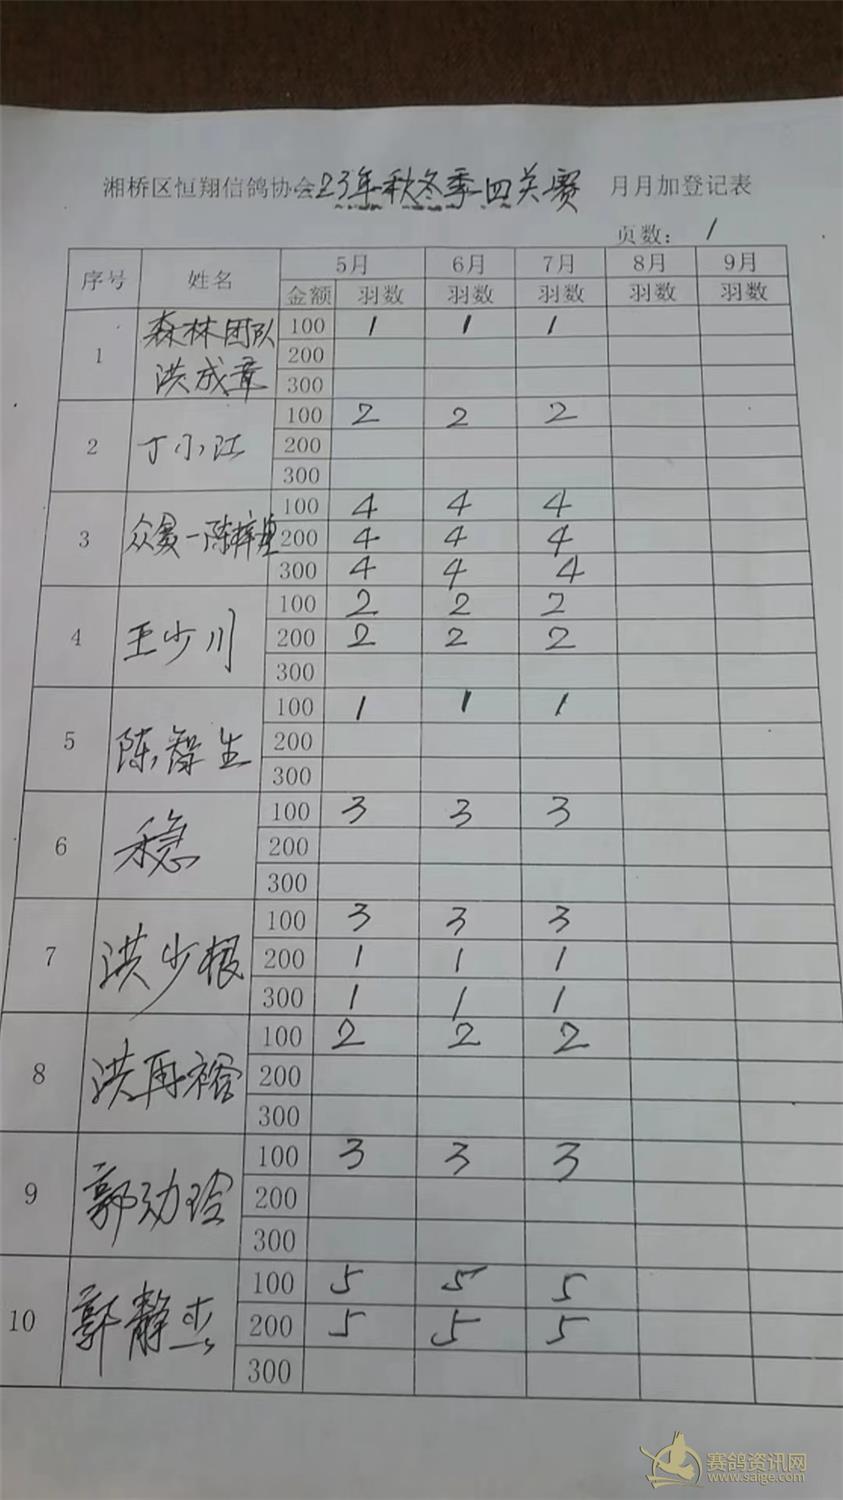 湘桥区恒翔信鸽协会23年秋冬季四关赛 月月加登记表
页数: 1
序号 姓名 5月 6月 7月 8月 9月
金额 羽数 羽数 羽数 羽数 羽数
1 森林团队 洪成章 100 1 1 1
200
300
2 丁小江 100 2 2 2
200
300
3 众赛—陈梓 100 4 4 4
200 4 4 4
300 4 4 4
4 王少川 100 2 2 2
200 2 2 2
300
5 陈智生 100 1 1 1
200
300
6 稳 100 3 3 3
200
300
7 洪少根 100 3 3 3
200 1 1 1
300 1 1 1
8 洪再裕 100 2 2 2
200
300
9 郭劲玲 100 3 3 3
200
300
10 郭静杰 100 5 5 5
200 5 5 5
300
赛鸽资讯网
www.saige.com